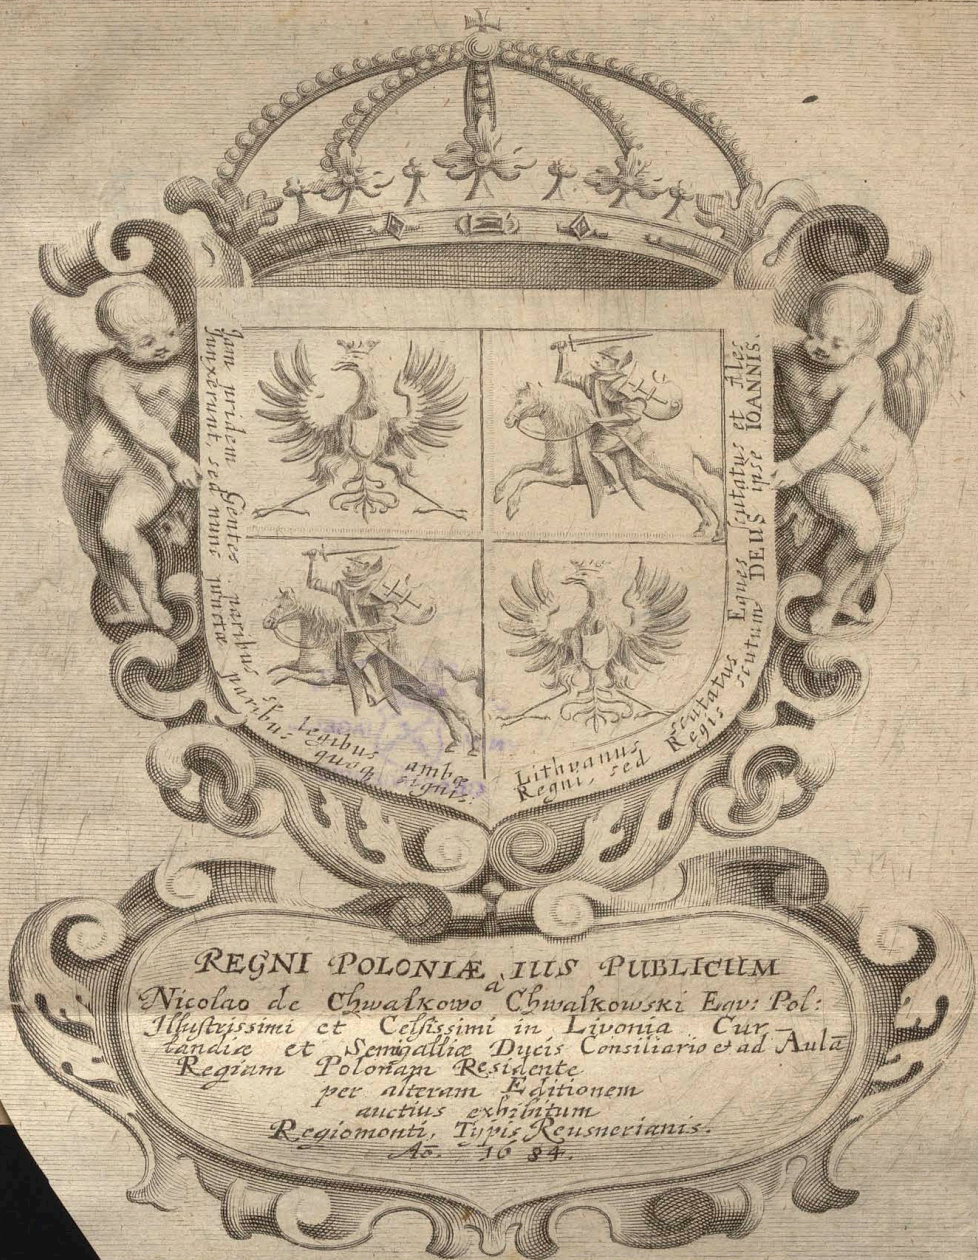 Iam pridem Gentes paribus se legibus ambæ
Junxerunt, sed nunc junctæ paribus quoq, signis:
Lithvanus scutatus Eques scutatus et Ales
Regni, sed Regis scutum DEUS ipse IOANNIS.
REGNI POLONIÆ IUS PUBLICUM
à
Nicolao de Chwałkowo Chwałkowski Eqv: Pol:
Illustrissimi et Celsissimi in Livonia Cur
landiæ et Semigalliæ Ducis Consiliario et ad Aulā
Regiam Polonam Residente
per alteram Editionem
auctius exhibitum
Regiomonti, Typis Reusnerianis.
Ao. 1684.